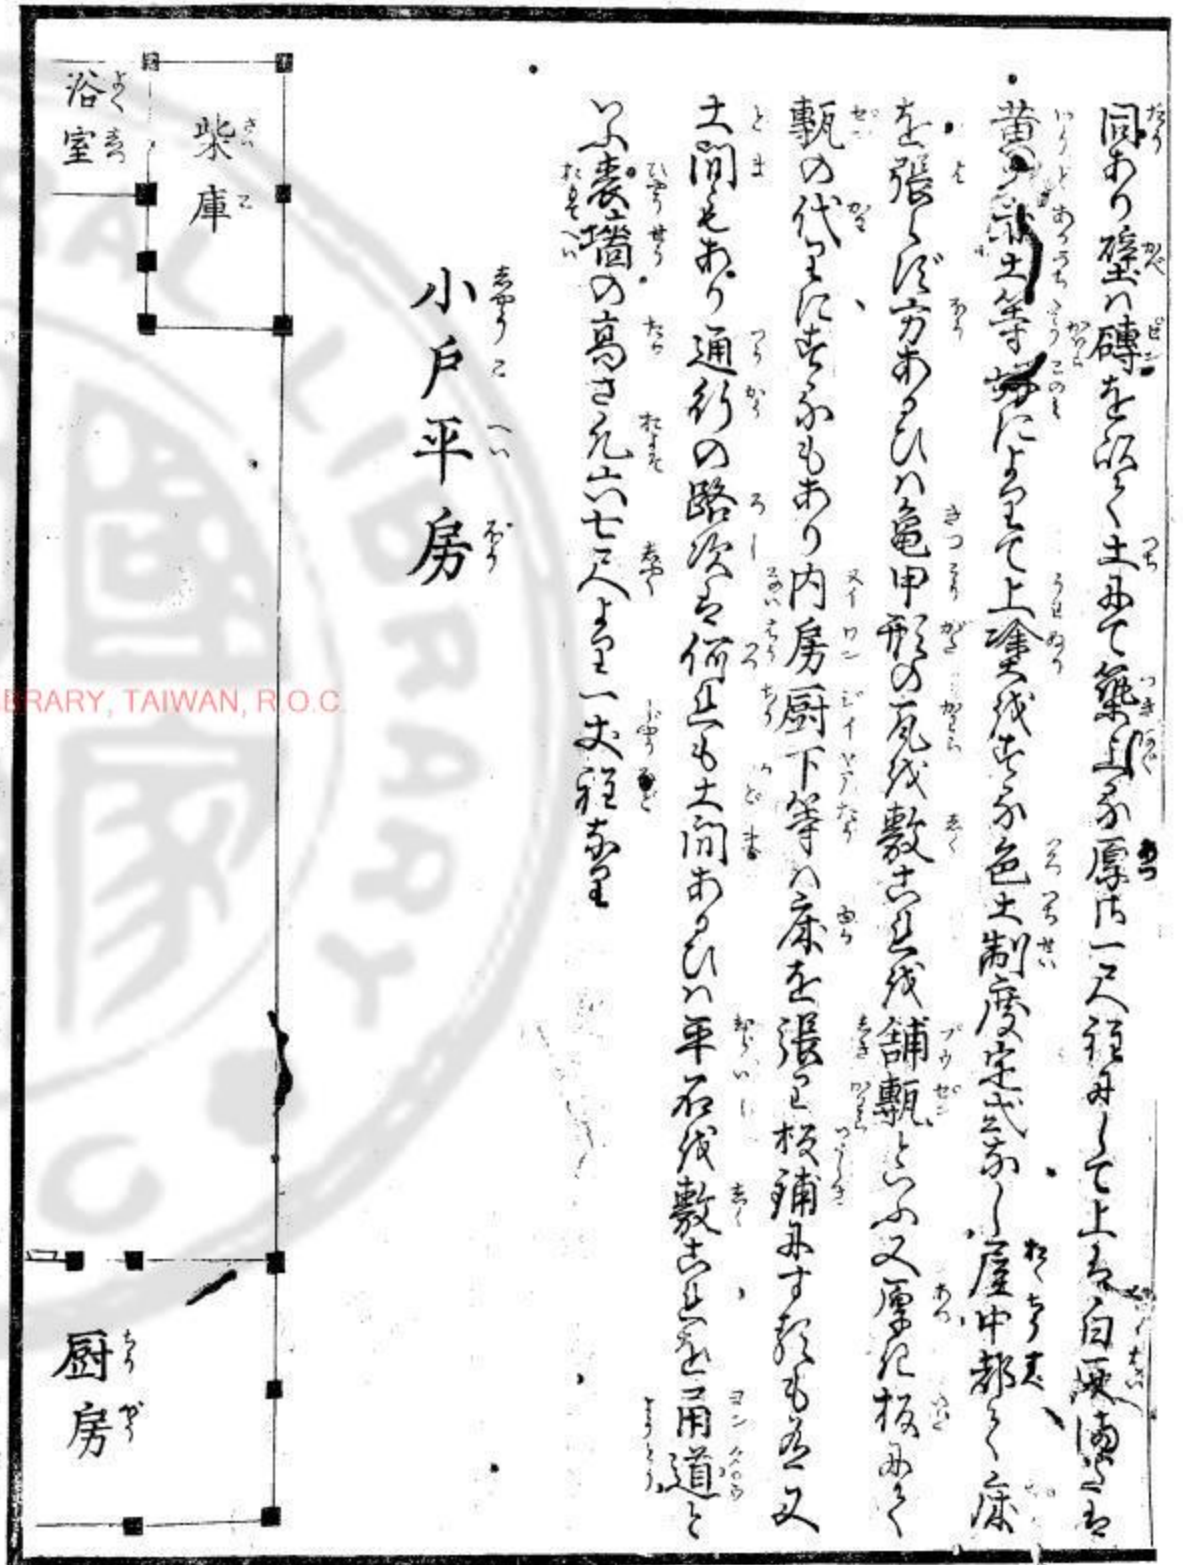 同あり壁ハ磚を以て土にて築上る厚サ一尺程にして上は白灰あるは
黄土赤土等好によりて上塗をする色土制度定式なし屋中都て床
を張らず方あるひハ亀甲形の瓦を敷これを舗甎といふ又厚き板にて
甎の代りにするもあり内房厨下等ハ床を張り板鋪にするも有又
土間もあり通行の路次は何れも土間あるひハ平石を敷これを甬道と
いふ裹墻の高さ凡六七尺より一丈程なり
小戸平房
柴庫
浴室
厨房
BRARY, TAIWAN, R.O.C.
LIBRARY